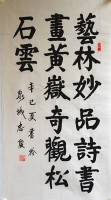 藝林妙品詩書
畫黃嶽奇觀松
石雲
辛巳夏書於
泉城忠